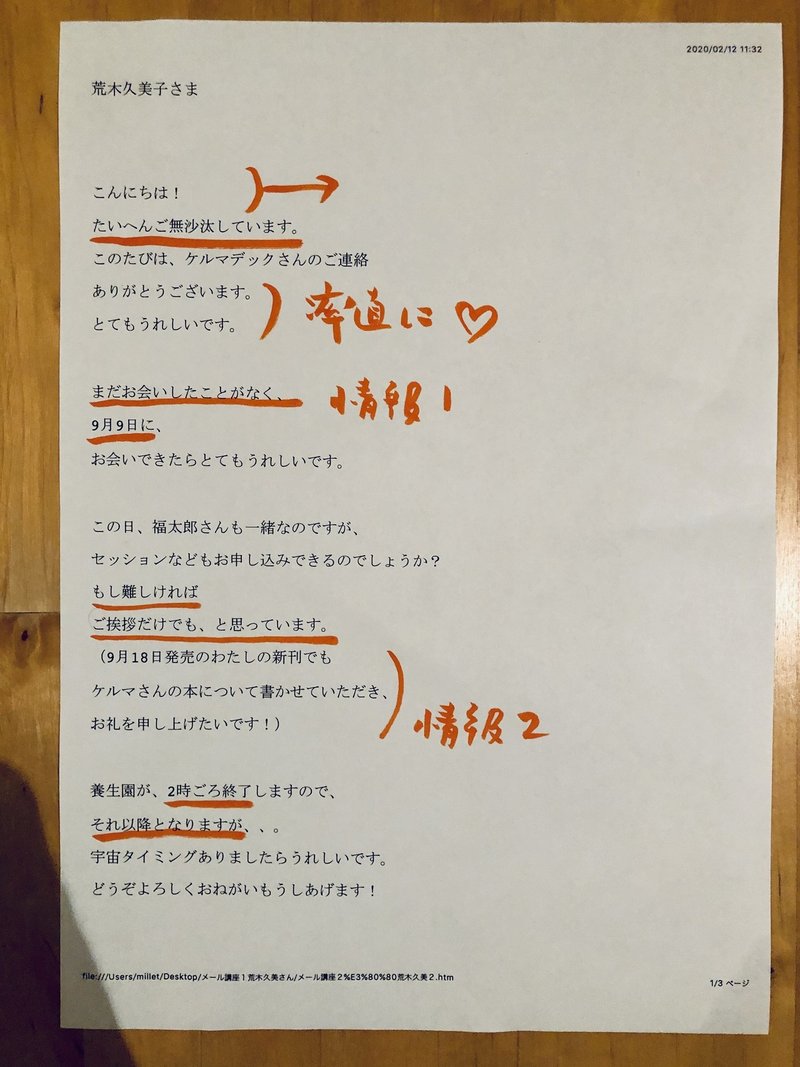 2020/02/12 11:32
荒木久美子さま
こんにちは！
たいへんご無沙汰しています。
このたびは、ケルマデックさんのご連絡
ありがとうございます。
とてもうれしいです。
率直に
まだお会いしたことがなく、
情報1
9月9日に、
お会いできたらとてもうれしいです。
この日、福太郎さんも一緒なのですが、
セッションなどもお申し込みできるのでしょうか？
もし難しければ
ご挨拶だけでも、と思っています。
（9月18日発売のわたしの新刊でも
ケルマさんの本について書かせていただき、
お礼を申し上げたいです！）
情報2
養生園が、2時ごろ終了しますので、
それ以降となりますが、、。
宇宙タイミングありましたらうれしいです。
どうぞよろしくおねがいもうしあげます！
file:///Users/millet/Desktop/メール講座１荒木久美さん/メール講座２%E3%80%80荒木久美２.htm
1/3 ページ